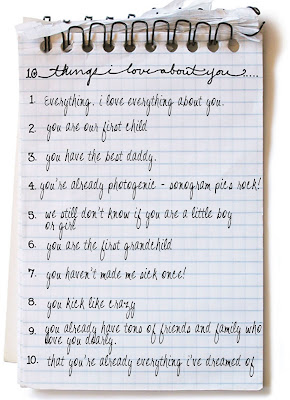 10 things i love about you....
1. Everything. i love everything about you.
2. you are our first child
3. you have the best daddy.
4. you're already photogenic - sonogram pics rock!
5. we still don't know if you are a little boy
or girl
6. you are the first grandchild
7. you haven't made me sick once!
8. you kick like crazy
9. you already have tons of friends and family who
love you dearly.
10. that you're already everything i've dreamed of